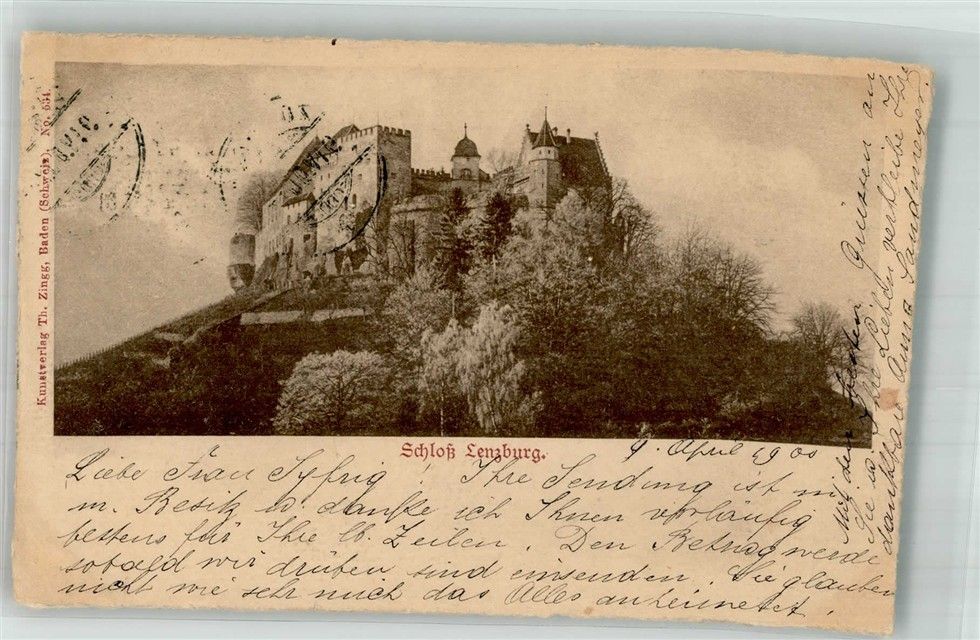 Kunstverlag Th. Zingg, Baden (Schweiz). No. 534.
Schloß Lenzburg.
9. April 1900
Liebe Frau Syfrig! Ihre Sendung ist in
m. Besitz u. danke ich Ihnen vorläufig
bestens für Ihre lb. Zeilen. Den Betrag werde
sobald wir drüben sind einsenden. Sie glauben
nicht wie sehr mich das Alles anheimelt.
Mit den besten Grüssen an
Sie & Ihre Lieben verbleibe Ihre
dankbare Anna Landmeyer.